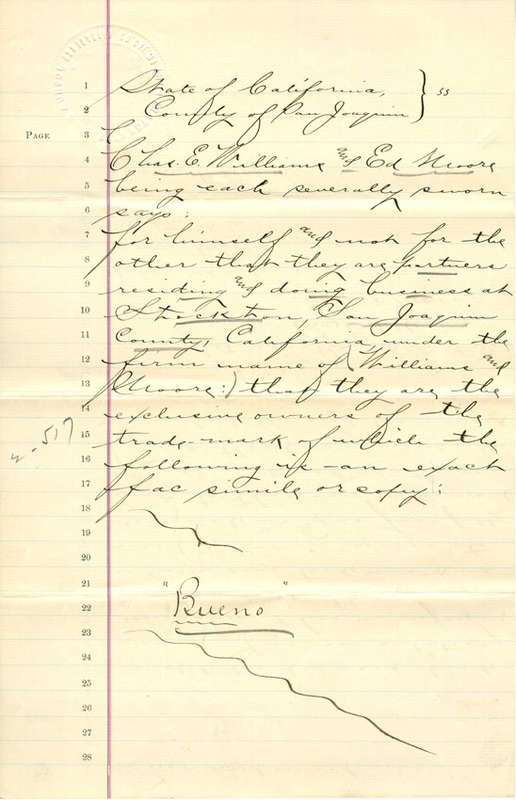 1 State of California, } ss
2 County of San Joaquin
PAGE 3
4 Chas. E. Williams and Ed Moore
5 being each severally sworn
6 says:
7 for himself and not for the
8 other that they are partners
9 residing and doing business at
10 Stockton, San Joaquin
11 County, California, under the
12 firm name of (Williams and
13 Moore:) that they are the
14 exclusive owners of the
15 trade-mark of which the
16 following is an exact
17 fac simile or copy:
18
19
20
21
22 "Bueno"
23
24
25
26
27
28
517